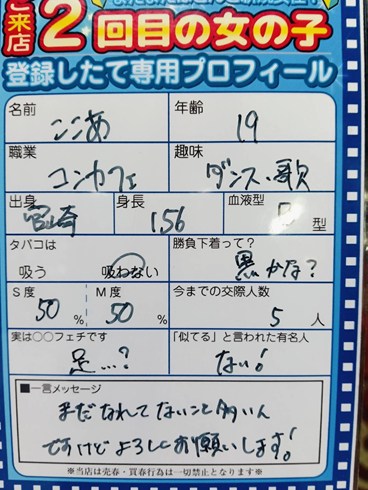 ご来店
2回目の女の子
登録したて専用プロフィール
名前 ここあ 年齢 19
職業 コンカフェ 趣味 ダンス、歌
出身 宮崎 身長 156 血液型 型
タバコは 吸う 吸わない 勝負下着って? 黒かな?
S度 50% M度 50% 今までの交際人数 5人
実は○○フェチです 足…? 「似てる」と言われた有名人 ない!
■一言メッセージ
まだなれてないこと多いん
ですけどよろしくお願いします!
※当店は売春・買春行為は一切禁止となります※